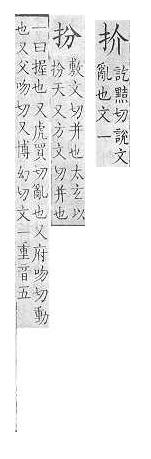 扴
訖黠切說文
亂也文一
扮
敷文切并也太玄以
扮天又方文切并也
一曰握也又虎買切亂也又府吻切動
也又父吻切又博幻切文一重音五